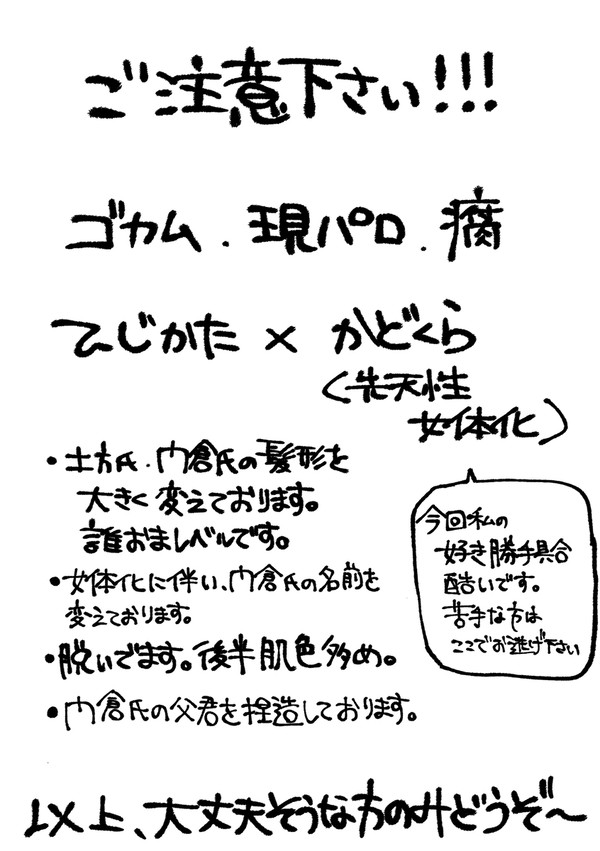 ご注意下さい!!!
ゴカム.現パロ.腐
ひじかた × かどくら
(先天性
女体化)
・土方氏.门倉氏の髪形を
大きく変えております。
誰おまレベルです。
・女体化に伴い、门倉氏の名前を
変えております。
・脱いでます。後半肌色多め。
・门倉氏の父君を捏造しております。
今回私の
好き勝手具合
酷いです。
苦手な方は
ここでお逃げ下さい
以上、大丈夫そうな方のみどうぞ〜